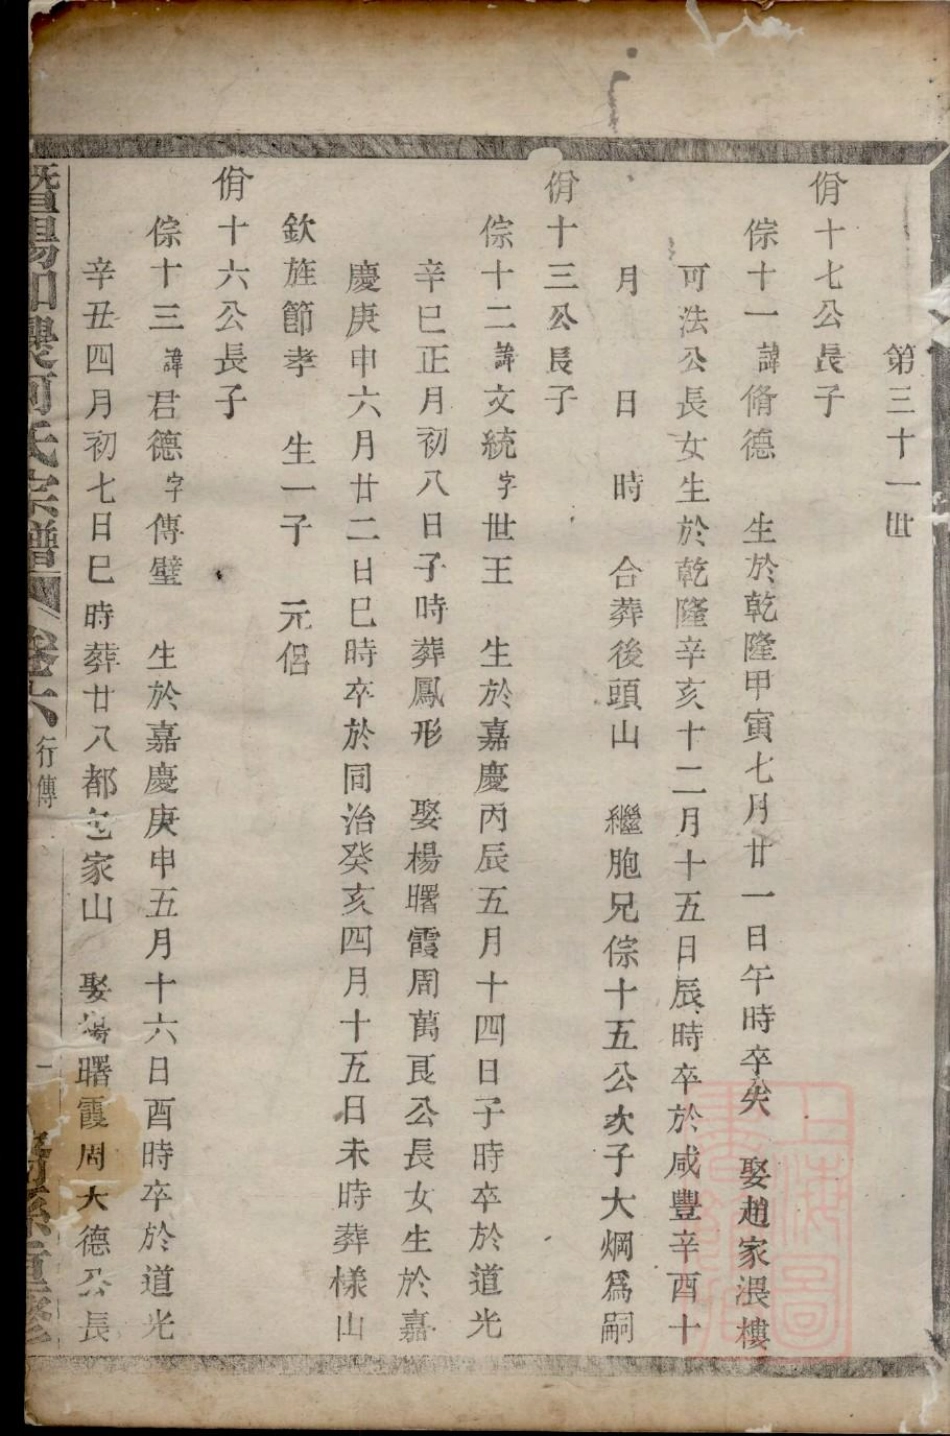 第三十一世
佾十七公長子
倧十一諱脩德　生於乾隆甲寅七月廿一日午時卒失　娶趙家渨樓
可法公長女生於乾隆辛亥十二月十五日辰時卒於咸豐辛酉十
月　日　時　合葬後頭山　繼胞兄倧十五公次子大烱爲嗣
佾十三公長子
倧十二諱文統字世王　生於嘉慶丙辰五月十四日子時卒於道光
辛巳正月初八日子時葬鳳形　娶楊曙霞周萬良公長女生於嘉
慶庚申六月廿二日巳時卒於同治癸亥四月十五日未時葬樣山
欽旌節孝　生一子　元侶
佾十六公長子
倧十三諱君德字傳璧　生於嘉慶庚申五月十六日酉時卒於道光
辛丑四月初七日巳時葬廿八都包家山　娶楊曙霞周大德公長
暨陽 河氏宗譜 卷六 行傳 一
上海圖書館